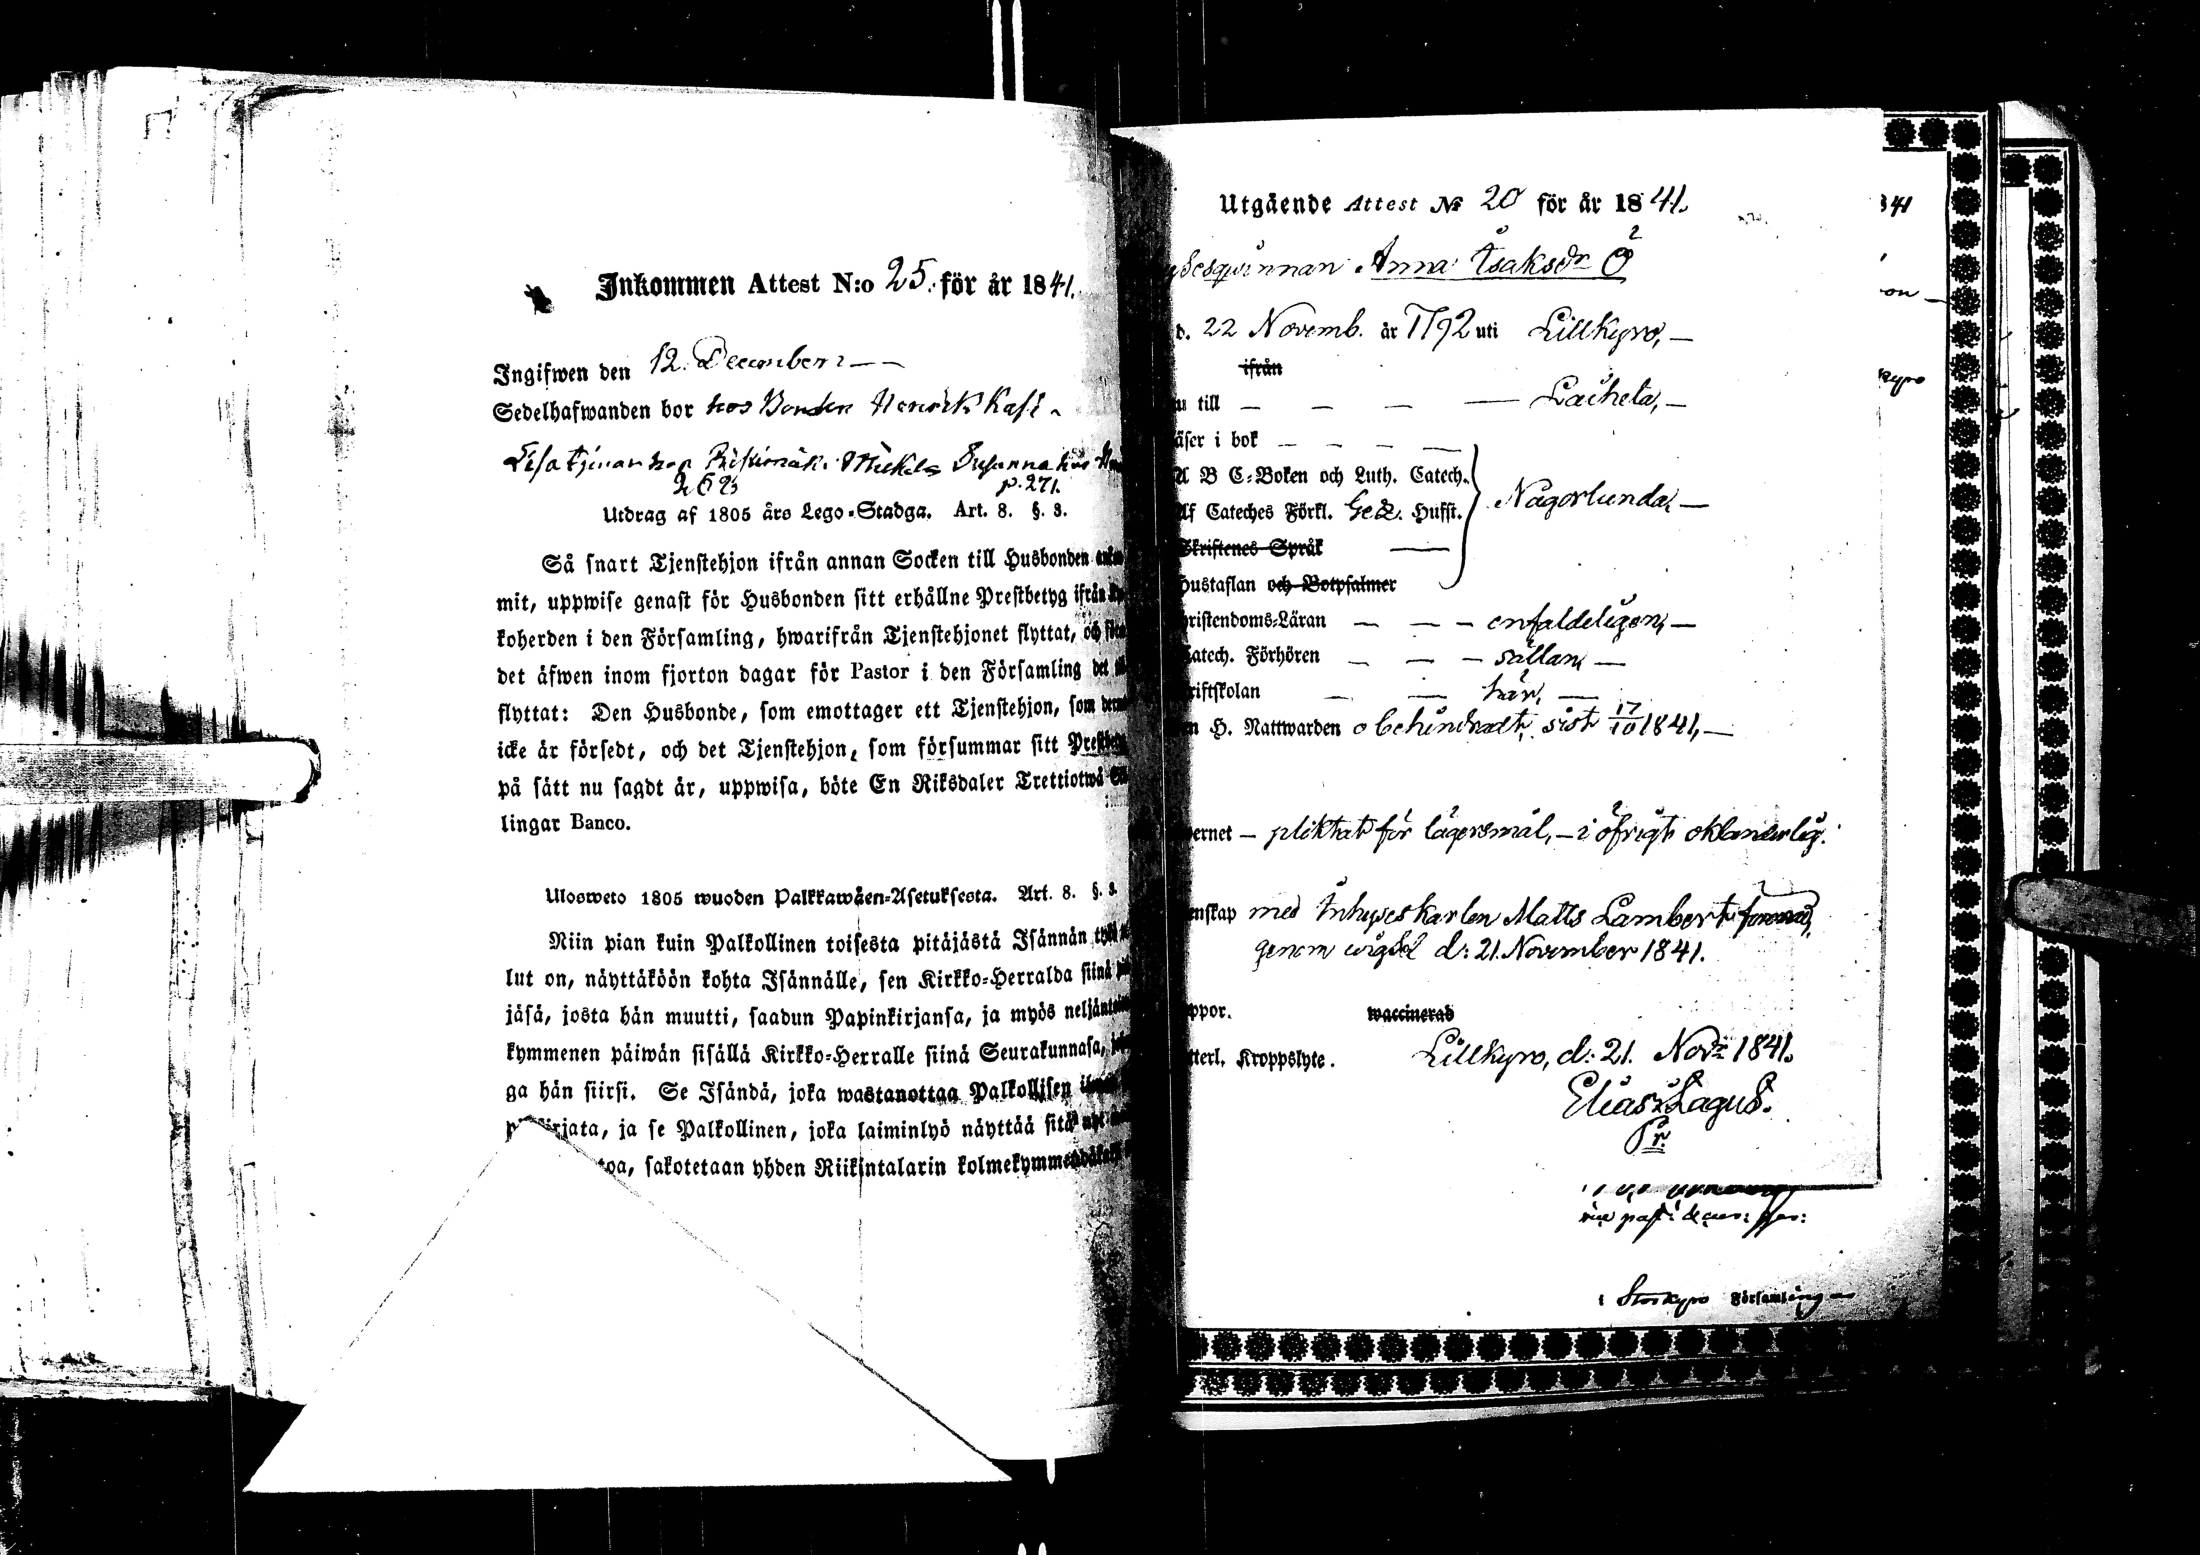 Inkommen Attest N:o 25. för år 1841.
Ingifwen den 12. December
Sedelhafwanden bor hos Bonden Henrik
Lisa tjenar hos Mickels Susanna hos
p. 271.
Utdrag af 1805 års Lego-Stadga. Art. 8. §. 3.
Så snart Tjenstehjon ifrån annan Socken till Husbonden
mit, uppwise genast för Husbonden sitt erhållne Prestbetyg ifrån
koherden i den Församling, hwarifrån Tjenstehjonet flyttat, och
det äfwen inom fjorton dagar för Pastor i den Församling det
flyttat: Den Husbonde, som emottager ett Tjenstehjon, som
icke är försedt, och det Tjenstehjon, som försummar sitt
på sätt nu sagdt är, uppwisa, böte En Riksdaler Trettiotwå
lingar Banco.
Ulosweto 1805 wuoden Palkkawäen-Asetuksesta. Art. 8. §. 3.
Niin pian kuin Palkollinen toisesta pitäjästä Isännän
lut on, näyttäköön kohta Isännälle, sen Kirkko-Herralda siinä
jäsä, josta hän muutti, saadun Papinkirjansa, ja myös
kymmenen päiwän sisällä Kirkko-Herralle siinä Seurakunnasa,
ga hän siirsi. Se Isändä, joka wastanottaa Palkollisen
ja se Palkollinen, joka laiminlyö näyttää sitä
toa, sakotetaan yhden Riikintalarin
Utgående Attest No 20 för år 1841.
Anna Isaksdr Ö
d. 22 Novemb. år 1792 uti Lillkyro, —
ifrån
u till — — — — Laihela, —
äser i bok — — — —
A B C-Boken och Luth. Catech.
Af Cateches Förkl. Ged. Hufst. Någorlunda, —
Skriftenes Språk —
Hustaflan och Botpsalmer
ristendoms-Läran — — — enfaldeligen, —
Catech. Förhören — — — sällan, —
riftskolan — — här, —
n H. Nattwarden obehindradt, sist 17/10 1841, —
ernet — pliktat för lägersmål, — i öfrigt oklanderlig.
nskap med Inhyseskarlen Matts Lambert
genom wigsel d: 21. November 1841.
ppor. waccinerad
tterl. Kroppslyte. Lillkyro, d: 21. Novr 1841.
Elias Lagus.
Pr.
i Storkyro Församling
41
on —
kyro